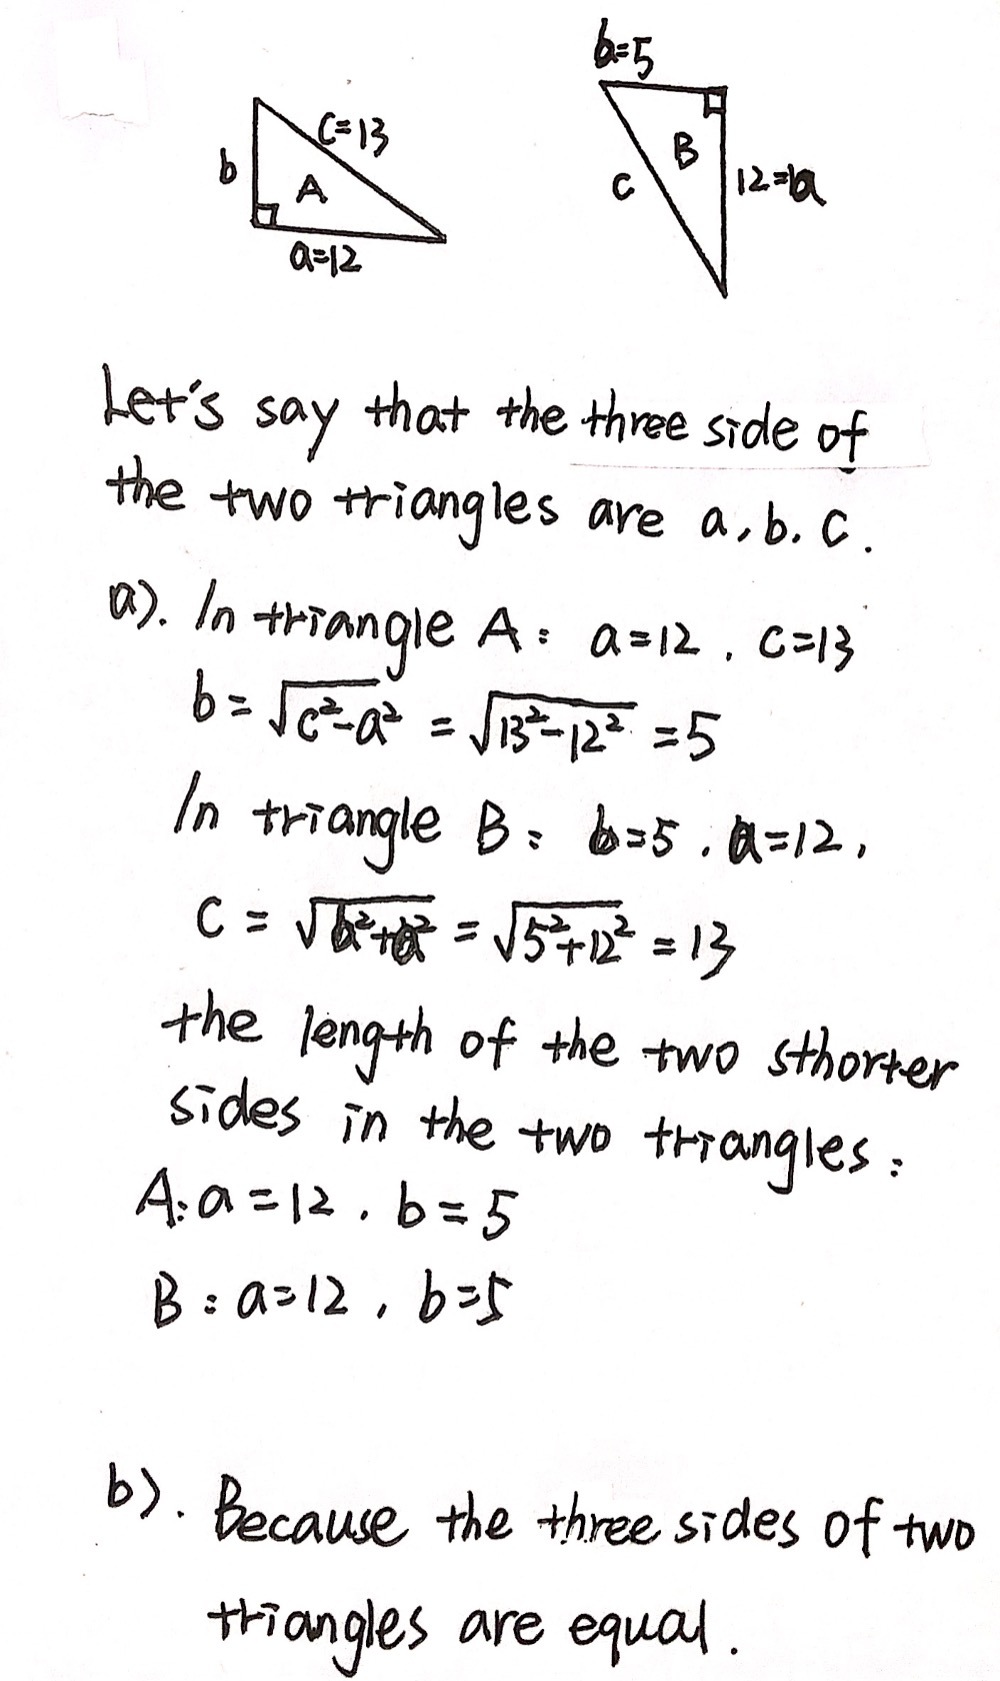 b=5
c=13
b
A
a=12
B
c
12=a
Let's say that the three side of
the two triangles are a, b. c.
a). In triangle A: a=12. c=13
b=√c²-a² = √13²-12² =5
In triangle B: b=5. a=12,
c = √b²+a² = √5²+12² = 13
the length of the two sthorter
sides in the two triangles:
A: a=12. b=5
B: a=12, b=5
b). Because the three sides of two
triangles are equal.